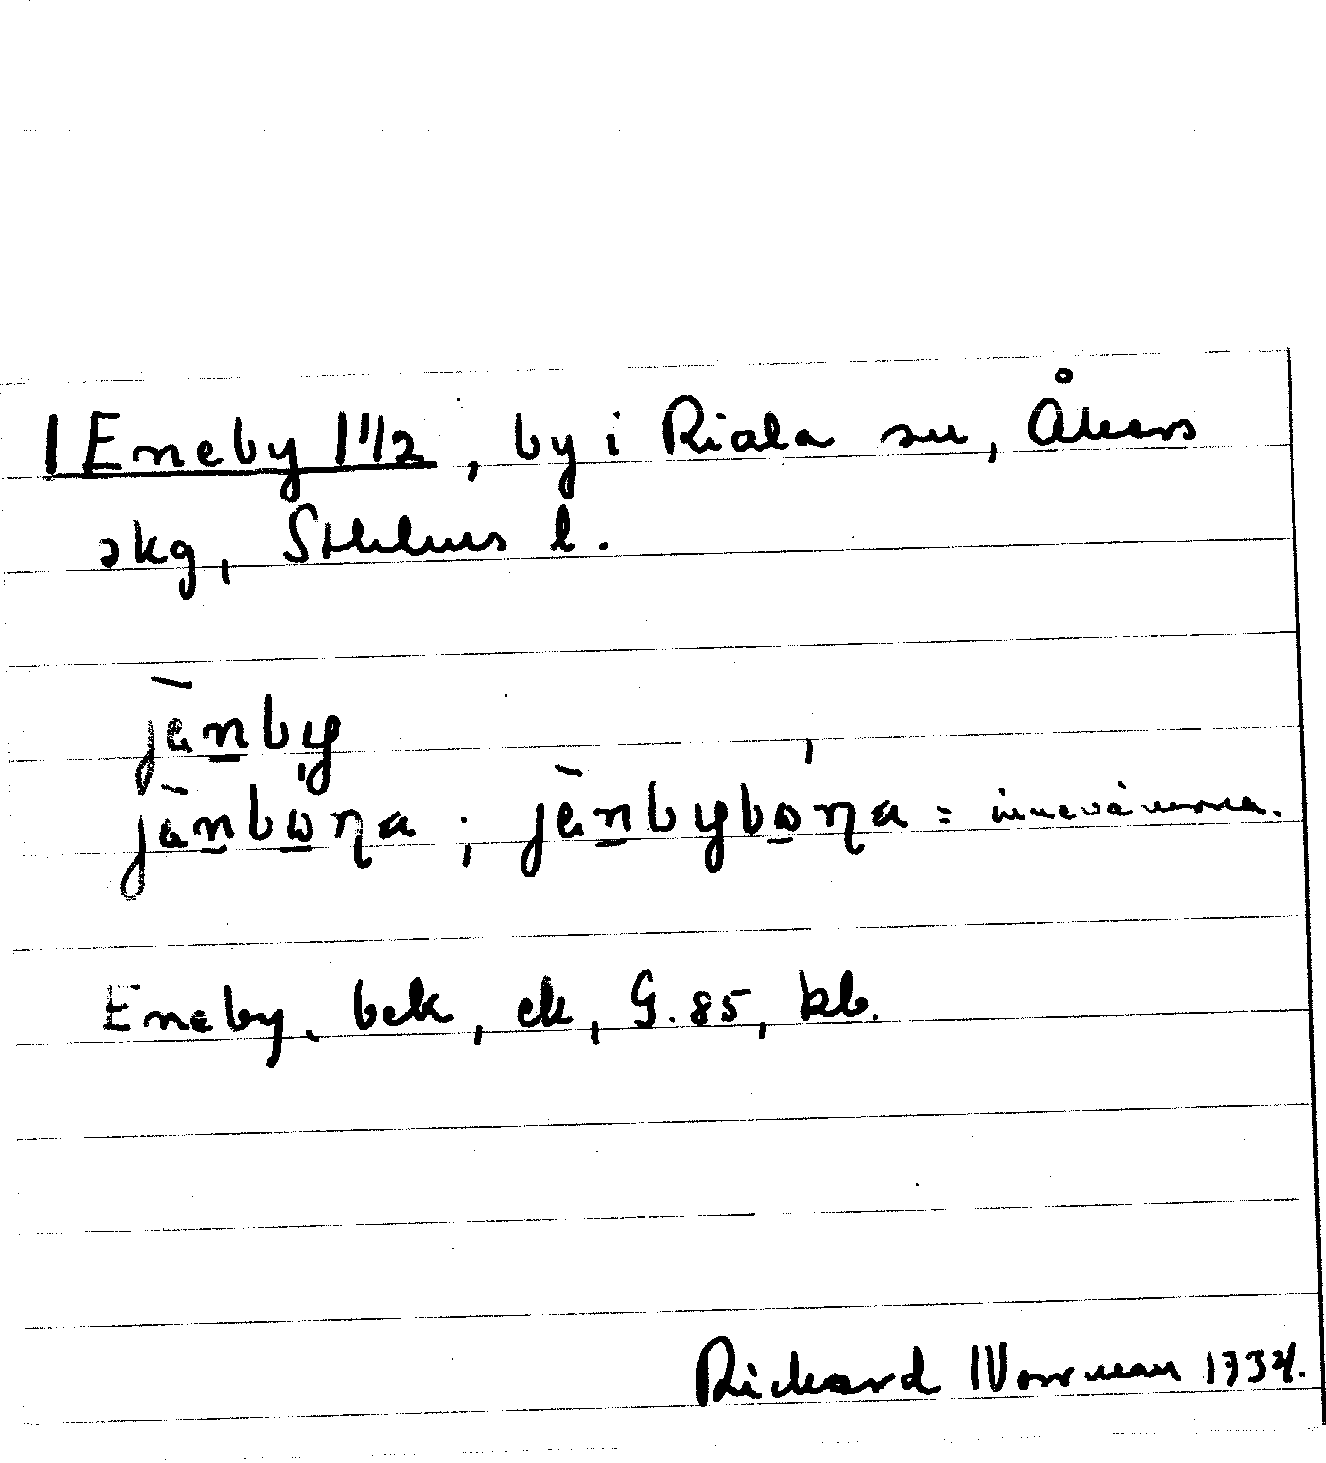 1 Eneby 1 1/2, by i Riala sn, Åkers
skg, Sthlms l.
jènby
jènbona ; jènbybona = innevånarna.
Eneby. bek, ek, G. 85, kb.
Rickard Norrman 1934.